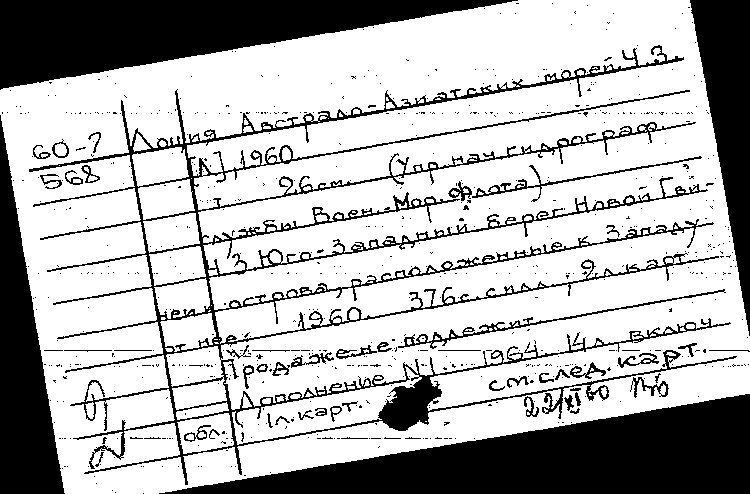 60-7
568
Лоция Австрало-Азиатских морей. Ч. 3.
[Л], 1960.
т 26 см. (Упр. нач. гидрограф.
службы Воен.-Мор. флота)
Ч 3. Юго-Западный берег Новой Гви-
неи и острова, расположенные к Западу
от нее. 1960. 376 с. с илл.; 2 л. карт
Продаже не подлежит
Дополнение №1... 1964. 14 л., включ.
обл.; 1 л. карт. см. след. карт.
22/XI 60